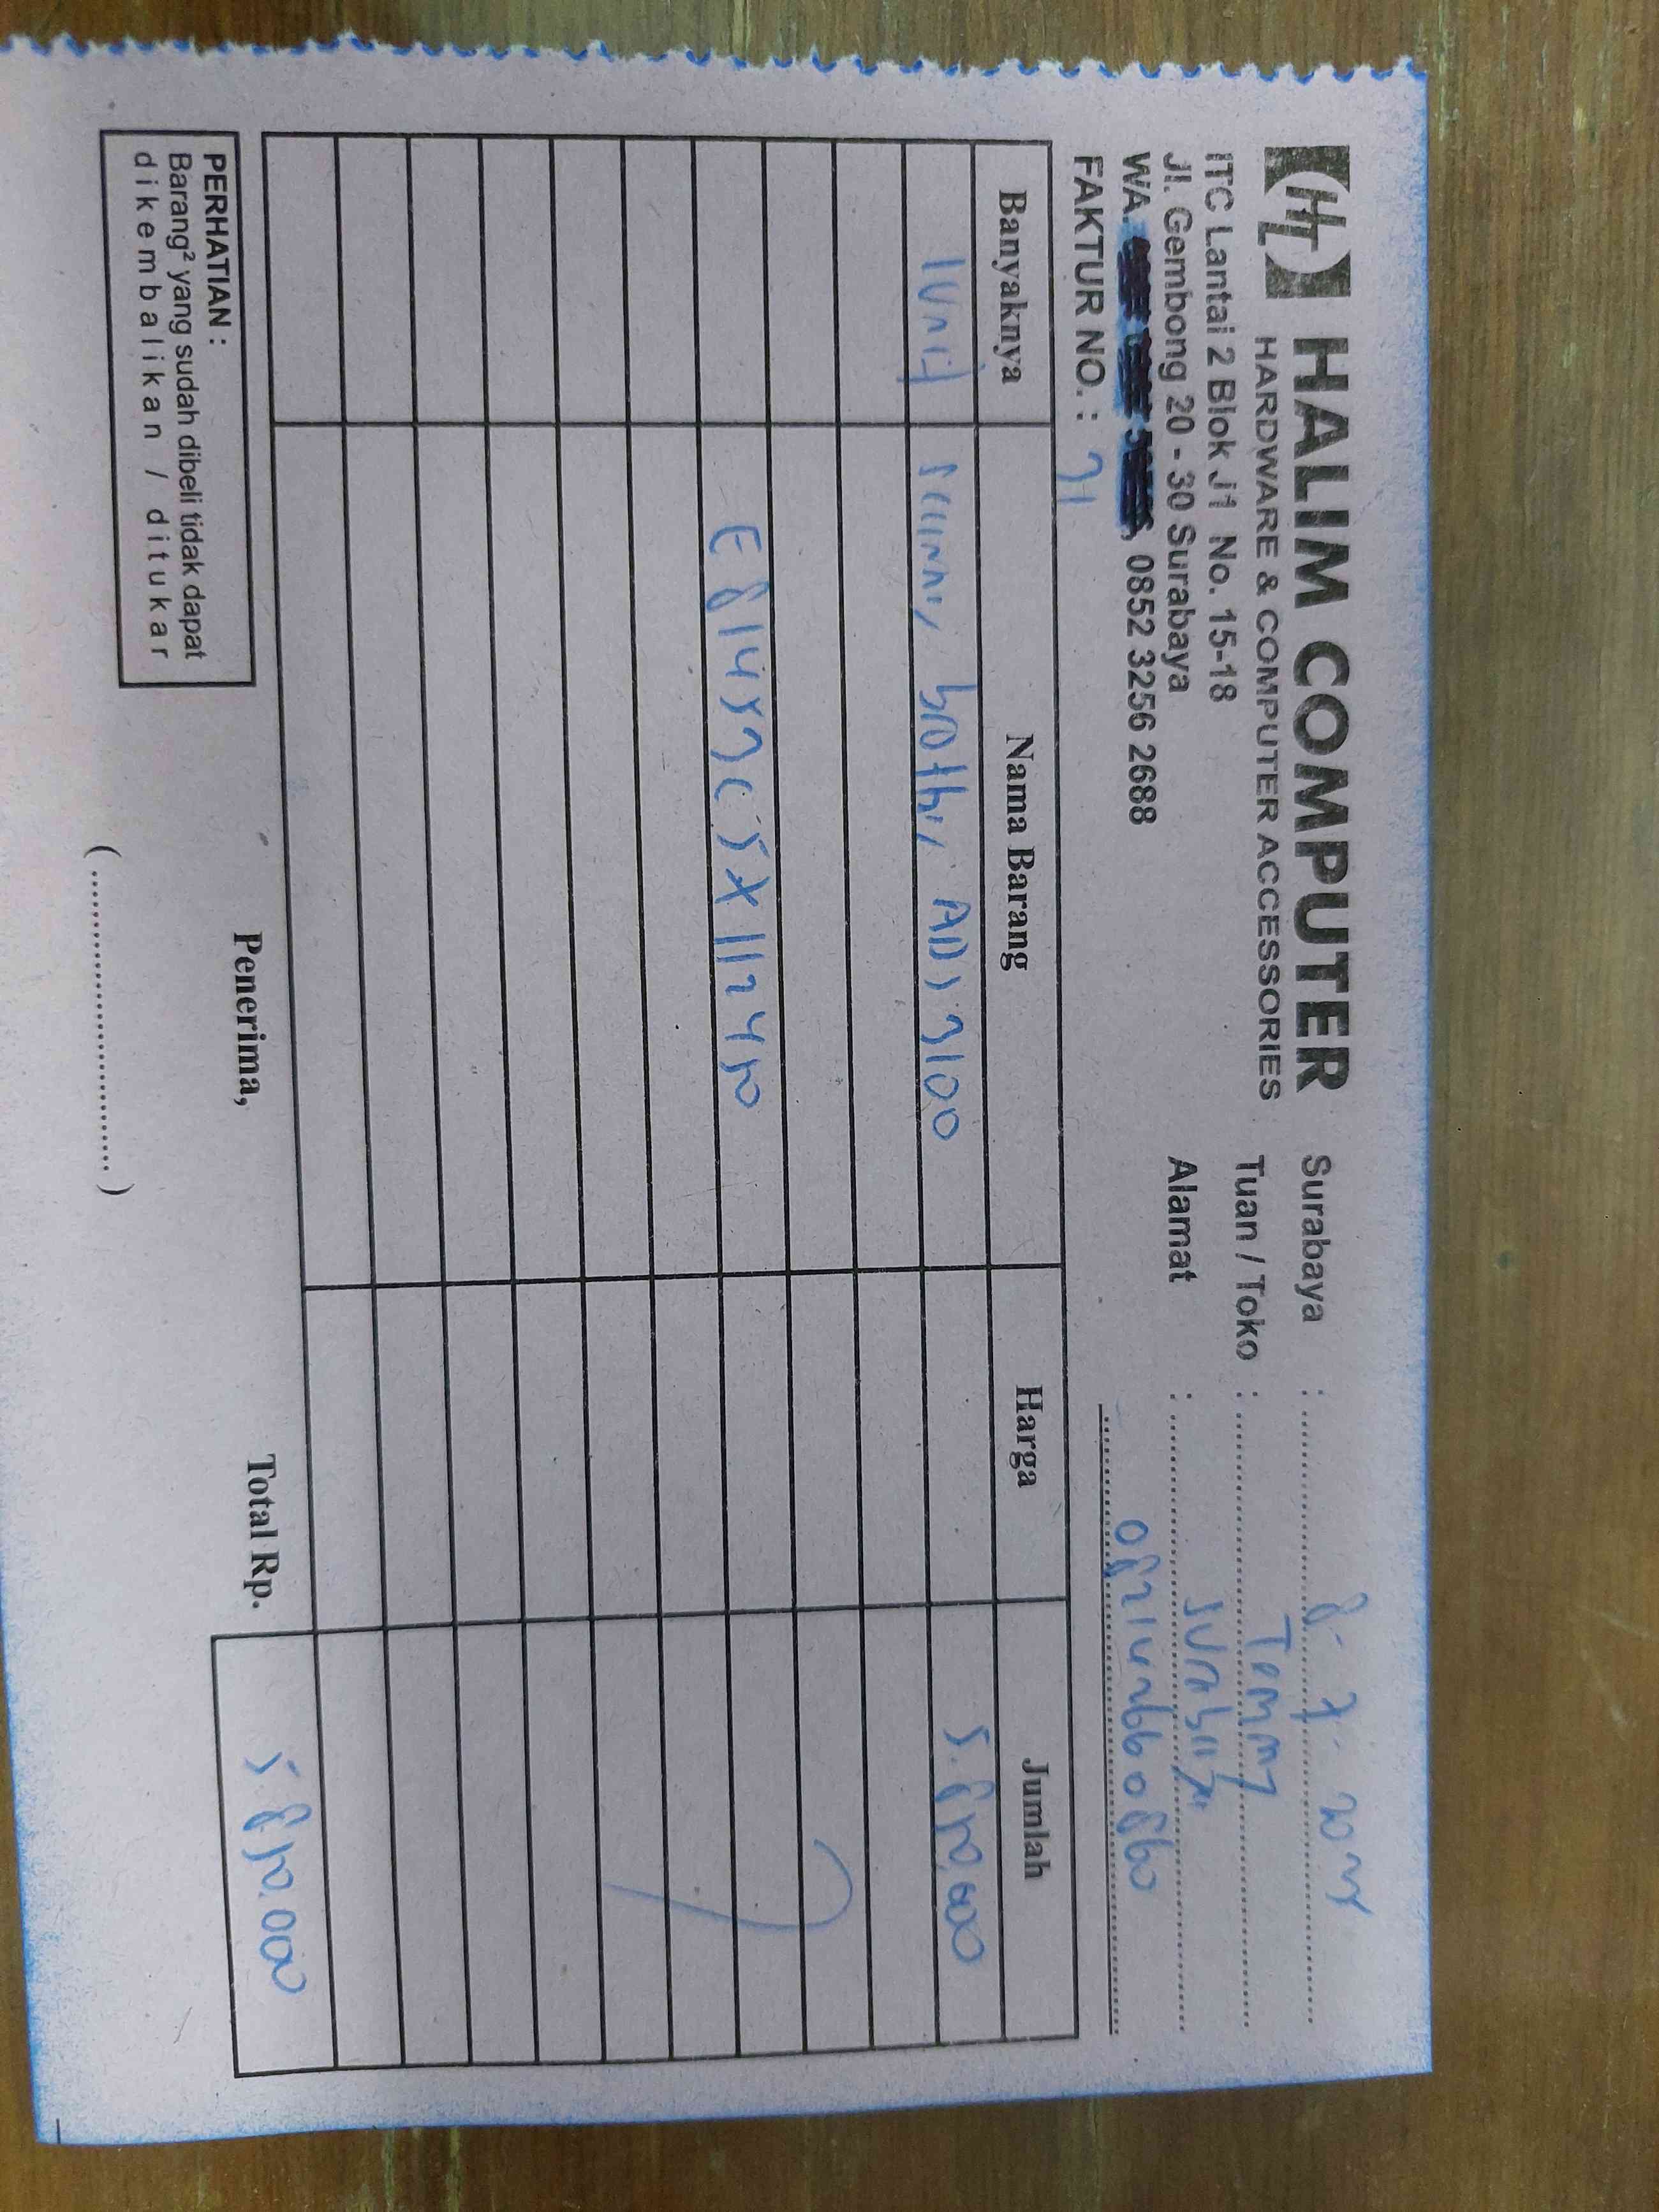 HL HALIM COMPUTER
HARDWARE & COMPUTER ACCESSORIES
ITC Lantai 2 Blok J1 No. 15-18
Jl. Gembong 20 - 30 Surabaya
WA. , 0852 3256 2688
FAKTUR NO. :
Surabaya :
Tuan / Toko : Tommy
Alamat : Surabaya
Banyaknya Nama Barang Harga Jumlah
1 Unit Scanner brother ADS 3100 5.850.000
PERHATIAN :
Barang² yang sudah dibeli tidak dapat
dikembalikan / ditukar
Penerima,
( .................................. )
Total Rp. 5.850.000